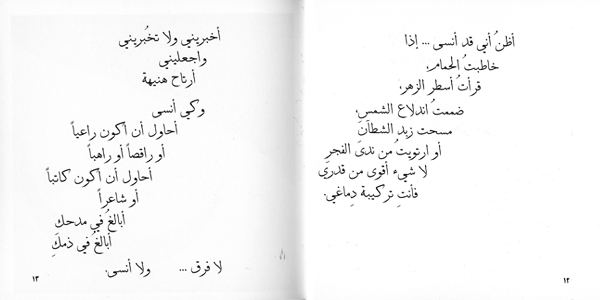 أظنُ أني قد أنسى ... إذا
خاطبتُ الحمام،
قرأتُ أسطر الزهر،
ضممتُ اندلاع الشمس،
مسحت زبد الشطآن
أو ارتويتُ من ندى الفجرِ
لا شيء أقوى من قدري
فأنتِ تركيبة دماغي.
١٢
أخبريني ولا تخُبريني
واجعليني
أرتاح هنيهة
وكي أنسى
أحاول أن أكون راعياً
أو راقصاً أو راهباً
أحاول أن أكون كاتباً
أو شاعراً
أبالغُ في مدحك
أبالغُ في ذمكِ
لا فرق ... ولا أنسى.
١٣